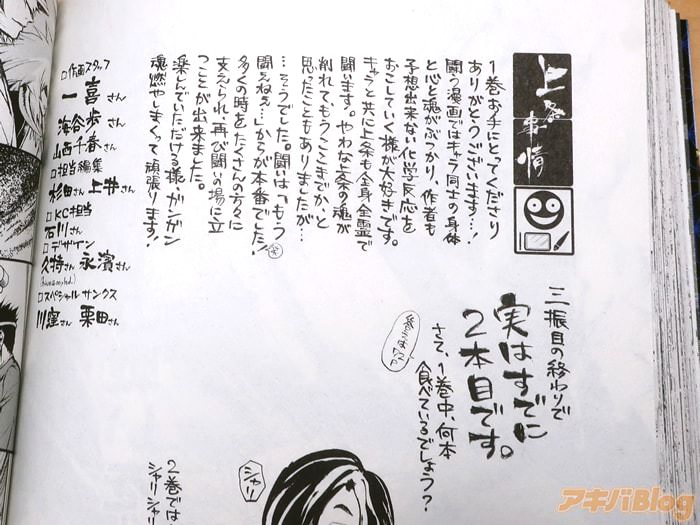 上条事情
1巻お手にとってくださり
ありがとうございます…!
闘う漫画ではキャラ同士の身体
と心と魂がぶつかり、作者も
予想出来ない化学反応を
おこしていく様が大好きです。
キャラと共に上条も全身全霊で
闘います。やわな上条の魂が
削れてもうここまでか、と
思ったこともありましたが…
…そうでした。闘いは「もう
闘えねぇ…からが本番でした!
多くの時をたくさんの方々に
支えられ、再び闘いの場に立
つことが出来ました。
楽しんでいただける様、ガンガン
魂燃やしまくって頑張ります!
□作画スタッフ
一喜さん
海谷歩さん
山西千春さん
□担当編集
杉田さん 上井さん
□KC担当
石川さん
□デザイン
久持さん 永濱さん
□スペシャルサンクス
川窪さん 栗田さん
三振目の終わりで
実はすでに
2本目です。
さて、1巻中、何本
食べているでしょう?
シャリ
2巻では
シャリシャリ
アキバBlog